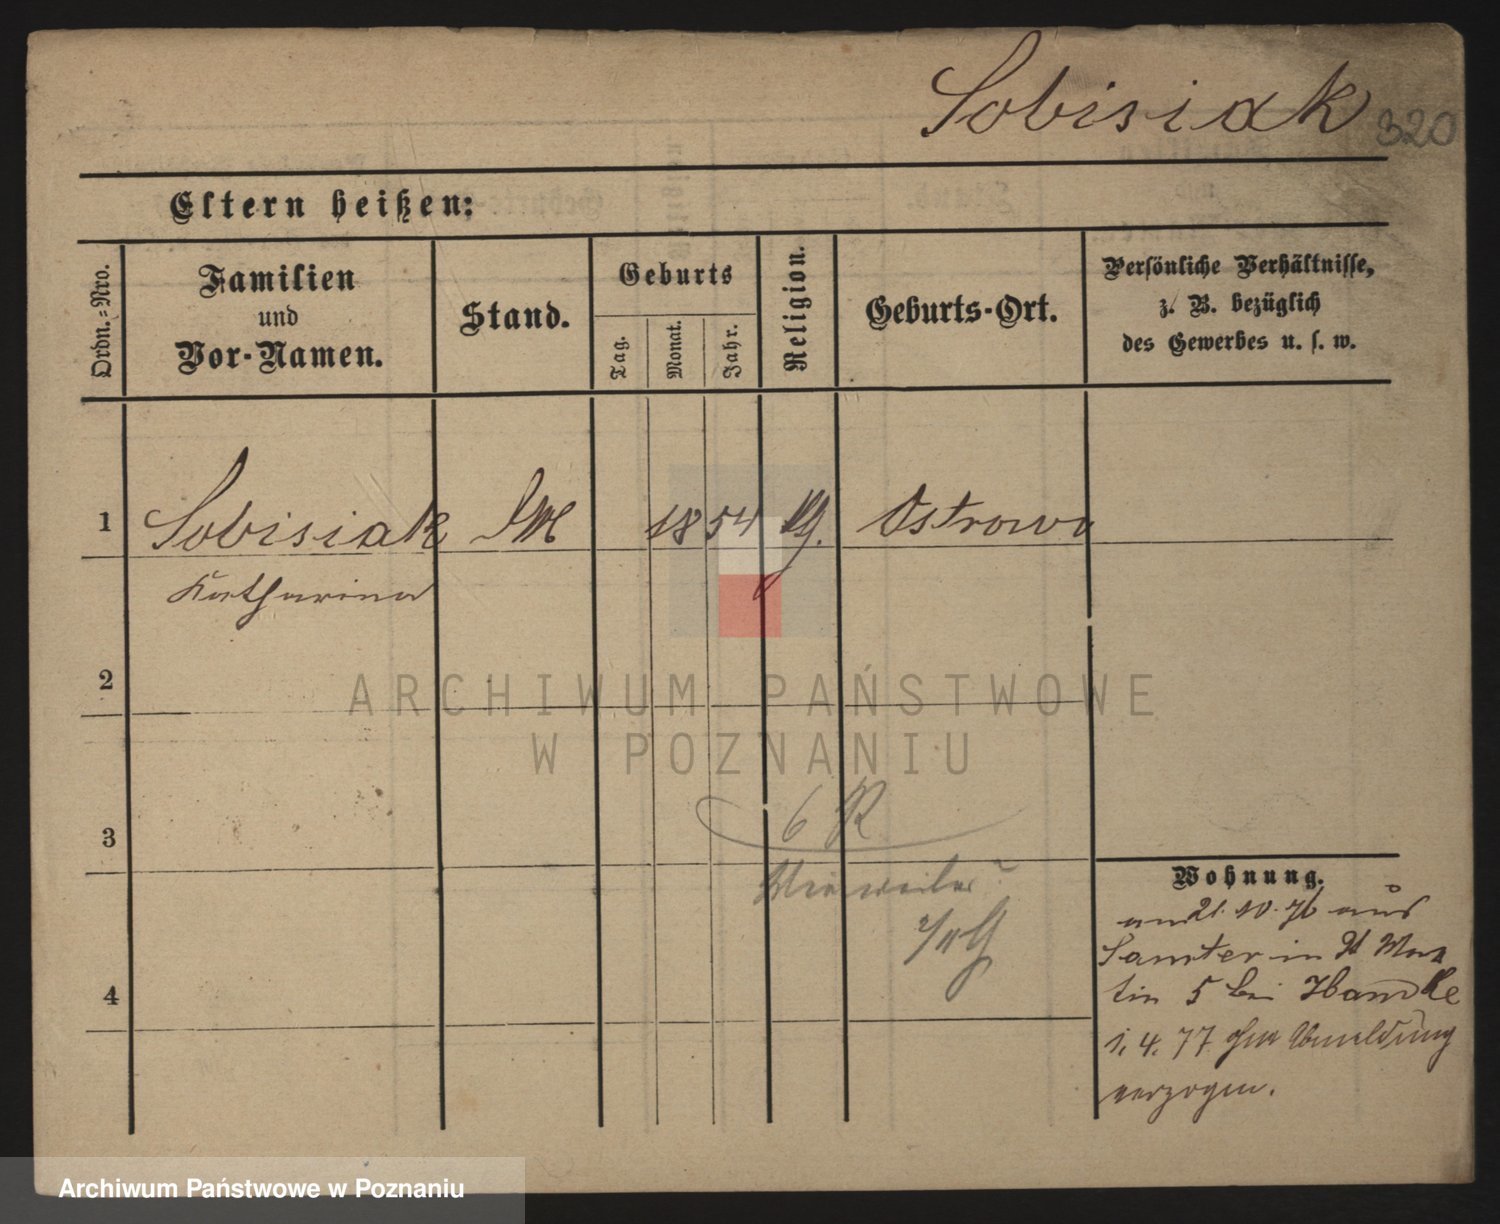 Sobisiak 320
Eltern heißen:
Ordn.-Nro.
Familien
und
Vor-Namen.
Stand.
Geburts
Tag.
Monat.
Jahr.
Religion.
Geburts-Ort.
Persönliche Verhältnisse,
z. B. bezüglich
des Gewerbes u. s. w.
1 Sobisiak 18 54 Ostrowo
Katharina
2
ARCHIWUM PAŃSTWOWE
W POZNANIU
6 R
3
Wohnung.
am 21.10.76 aus
Samter in St Mar
tin 5 bei Handke
4
1.4.77 ohne Abmeldung
verzogen.
Archiwum Państwowe w Poznaniu